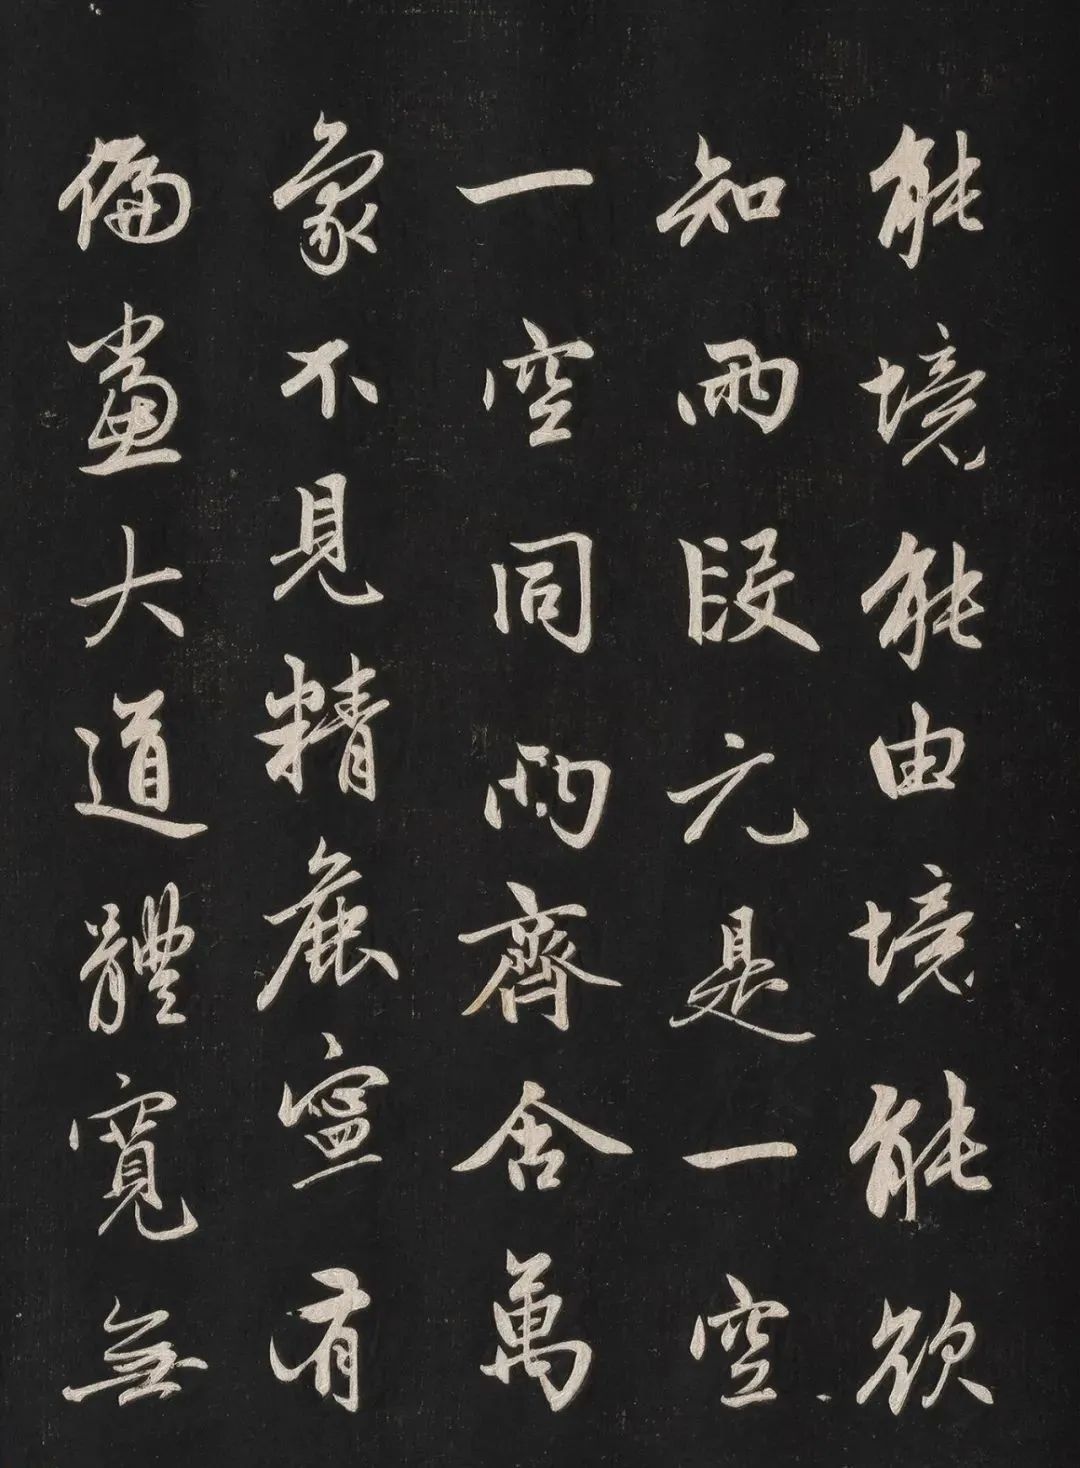 能境能由境能欲
知兩段元是一空
一空同兩齊含萬
象不見精麁寧有
偏黨大道體寬無